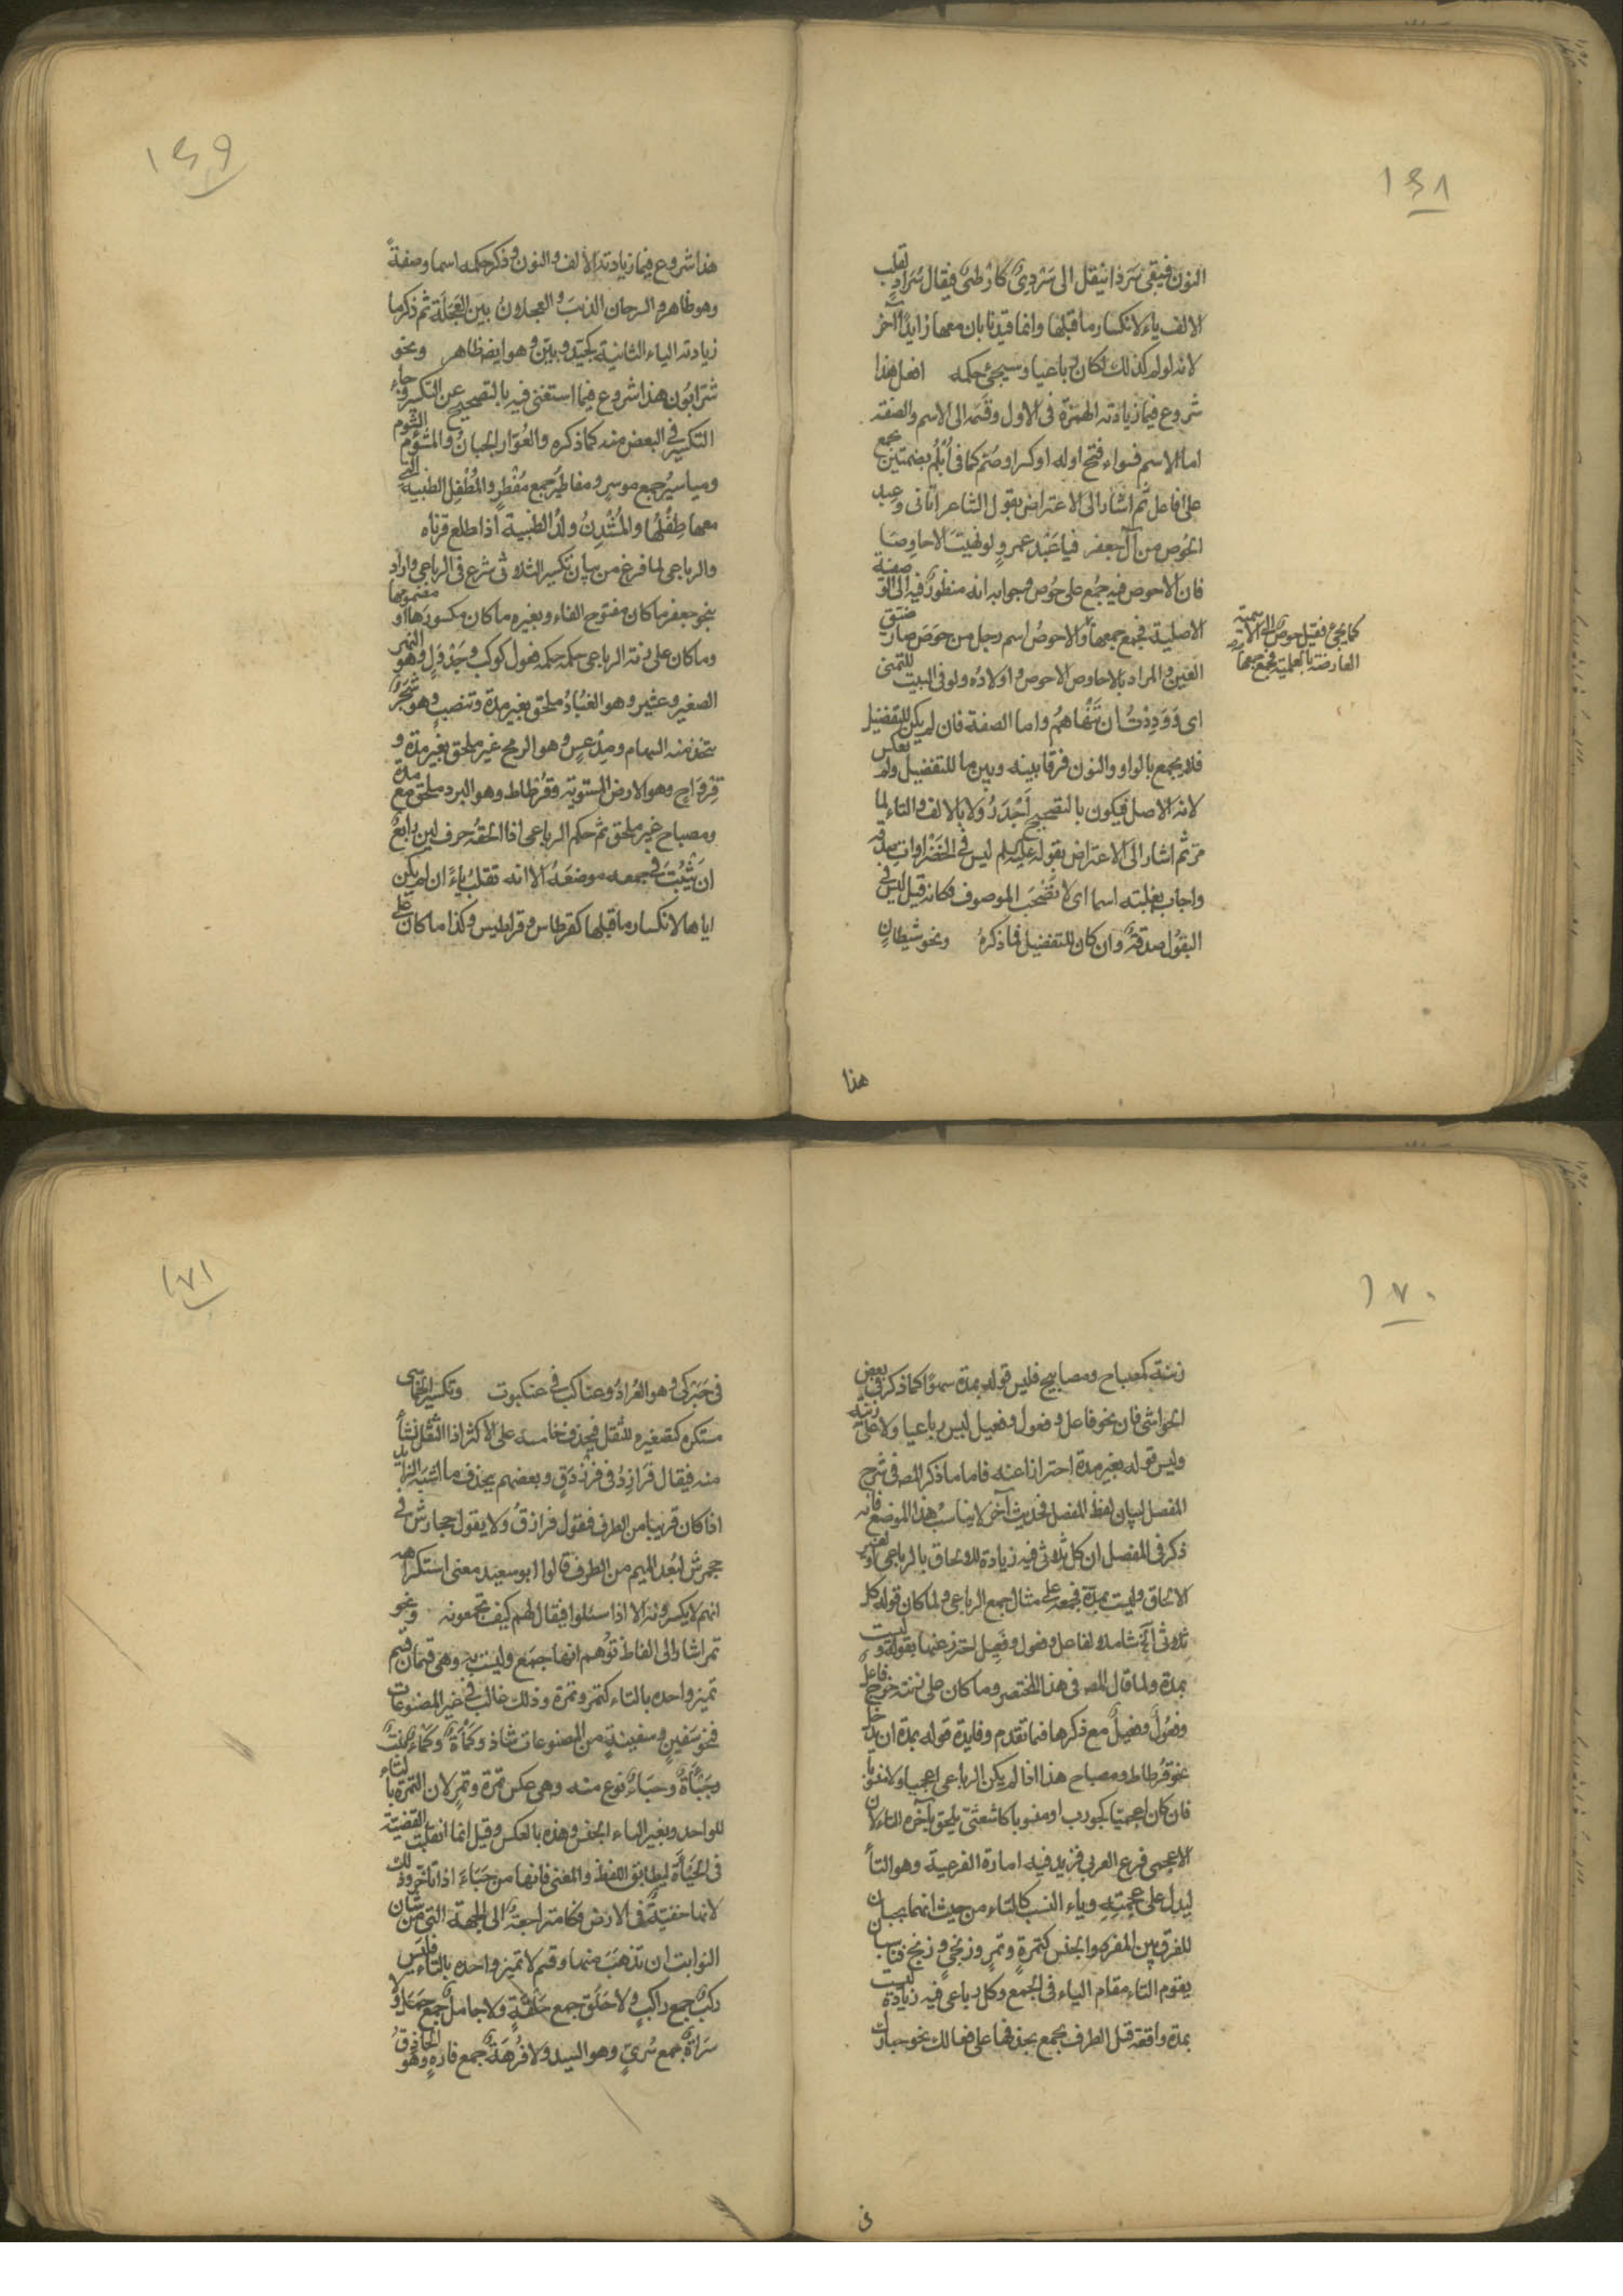 ١٦٨
النون فيبقى سَرَدًا ينقل الى سَرْدىً كَاَرْطىً فيقال سَرَادٍ تقلب
الالف ياء لانكسار ما قبلها وانما قيدنا بان معها زايدا آخر
لانه لو لم كذلك لكان رباعيا وسيجئ حكمه افعل هذا
شروع فيما زيادته الهمزة فى الاول وقسمه الى الاسم والصفة
اما الاسم فسواء فتح اوله او كسر او ضم كما فى اُبْلُم بضمتين يجمع
على افاعل ثم اشار الى الاعتراض بقول الشاعر اتانى وعيد
الحُوص من آل جعفر فيا عَبْدَ عمرٍو لو نهيتَ الاحاوِصَا
فان الاحوص فيه جُمع على حُوص وجوابه انه منظورٌ فيه الى الو صفية
الاصلية فجمع جمعها والاحوصُ اسم رجل من حَوِصَ صار ضيق
كما يجئ فقيل حوص والى الاسمية
العارضة بالعلمية فجمع جمعها
العين والمراد بالاحاوص الاحوص واولاده ولو فى البيت للتمنى
اى وَوَدِدْتُ ان تَنْهَاهم واما الصفة فان لم يكن للتفضيل
فلا يجمع بالواو والنون فرقا بينه وبين ما للتفضيل ولم يعكس
لانه الاصل فيكون بالتصحيح اَجْدَرُ ولا بالالف والتاء لما
مرّ ثم اشار الى الاعتراض بقوله عليه السلم ليس فى الخَضْراواتِ صدقة
واجاب بغلبته اسما اى لا يَصْحَبُ الموصوف فكانه قيل ليس فى
البقول صدقةٌ وان كان للتفضيل فما ذكرهُ ونحو شيطانٍ
هذا
١٦٩
هذا شروع فيما زيادته الالف والنون وذكر حكمه اسما وصفةً
وهو ظاهر والسرحان الذئبَ والعجلان بيّن العَجَلَة ثم ذكر ما
زيادته الياء الثانية كجيّد وبيّن وهو ايضا ظاهر ونحو
شرّابُون هذا شروع فيما استغنى فيه بالتصحيح عن التكسير وجاء
التكسير فى البعض منه كما ذكره والعُوّار الجبانُ والمشؤم الشوم
ومياسيرُ جمع موسِر ومفاطيرُ جمع مُفْطِر والمُطْفِل الظبية التى
معها طِفْلُها والمُشْدِنُ ولدُ الظبية اذا طلع قرناه
والرباعى لما فرغ من بيان تكسير الثلاثى شرع فى الرباعى واراد
بنحو جعفر ما كان مفتوح الفاء وبغيره ما كان مكسورَها او مضمومَها
وما كان على زنة الرباعى حكمه حكمه فعول كوكب وجَدْوَلٍ وهو النهر
الصغير وعثير وهو الغُبَارُ ملحق بغير مدة وتنضبٍ وهو شَجَرٌ
يتخذ منه السهام ومِدْعسٍ وهو الرمح غير ملحق بغير مدة و
قِرْوَاحٍ وهو الارض المستوية وقُرْطاط وهو البرد ملحق مع مدة
ومصباح غير ملحق ثم حكم الرباعى اذا الحقهُ حرف لين رابعٌ
ان يَثْبُتَ فى جمعه موضعَهُ الا انه تقلبُ ياءً ان لم يكن
اياها لانكسار ما قبلها كقرطاس وقراطيس وكذا ما كان على
١٧٠
زنته كمصباح ومصابيح فليس قوله بمدة سهوًا كما ذكر فى بعض
الحواشى فان نحو فاعل وفعول وفعيل ليس رباعيا ولا على زنته
وليس قوله بغير مدة احترازا عنه فاما ما ذكر المص فى شرح
المفصل لبيان لفظ المفصل فحديث آخر لا يناسبُ هذا الموضع فانه
ذكر فى المفصل ان كل ثلاثى فيه زيادة للالحاق بالرباعى او لغير
الالحاق وليست بمدّة فجمعه على مثال جمع الرباعى ولما كان قوله كل
ثلاثى آلخ شاملا لفاعل وفعول وفَعِيل احترز عنها بقوله وليست
بمدة ولما قال المص فى هذا المختصر وما كان على زنته خرج فاعلٌ
وفعُولٌ وفعيلٌ مع ذكرها فيما تقدم وفايدة قوله بمدة ان يدخل
نحو قُرطاط ومصباح هذا اذا لم يكن الرباعى اعجميا ولا منسوبا
فان كان اعجميّا كجورب او منسوبا كاشعثىّ يلحق بآخره التاء لان
الاعجمى فرع العربى فزيد فيه امارة الفرعية وهو التأ
ليدل على عجمته وياء النسب كالتاء من حيث انهما يجيئان
للفرق بين المفرد والجنس كتمرةٍ وتمرٍ وزنجىٍّ وزنجٍ فناسب ان
يقوم التاء مقام الياء فى الجمع وكل رباعى فيه زيادة ليست
بمدة واقعة قبل الطرف يجمع بحذفها على فعالل نحو حبارك
فى
١٧١
فى حَبَرْكَى وهو القُرادُ وعناكب فى عنكبوت وتكسير الخماسى
مستكره كتصغيره للثقل فيحذف خامسه على الاكثر اذ الثّقَل نشأ
منه فيقال فَرَازِدُ فى فَرَزْدَقٍ وبعضهم يحذف ما اشبه الزايد
اذا كان قريبا من الطرف فيقول فرازقُ ولا يقول جحارش فى
جحمرش لبُعد الميم من الطرف قالوا ابو سعيد معنى استكراهه
انهم لا يكسرونه الا اذا سئلوا فيقال لهم كيف تجمعونه ونحو
تمر اشار الى الفاظ تُوُهم انها جمَع وليست به وهى قسمان قسم
تميز واحده بالتاء كتمر وتمرة وذلك غالب فى غير المصنوعات
فنحو سَفينٍ وسفينةٍ من المصنوعات شاذ وكَمْأَة وكَمْاء نبتٌ
وجَبْأَةٌ وجَبَاءٌ نوع منه وهى عكس تمرة وتمرٍ لان التمرة بالتاء
للواحد وبغير الهاء الجنس وهذه بالعكس وقيل انما انقلبت القضية
فى الجَبْأَة ليطابق اللفظ والمعنى فانها من جَبَاءَ اذا تأخر وذلك
لانها خفيّة فى الارض فكأنها متراجعة الى الجهة التى من شان
النوابت ان تذهبَ منها وقسم لا تميز واحده بالتاء فليس
ركبٌ جمع راكبٍ ولا حَلَقٌ جمع حَلْقةٍ ولا جاملٌ جمع جَمَلٍ ولا
سَراةٌ جمع سُرىٍّ وهو السيد ولا فُرْهَةٌ جمع فارهٍ وهو الحاذقُ